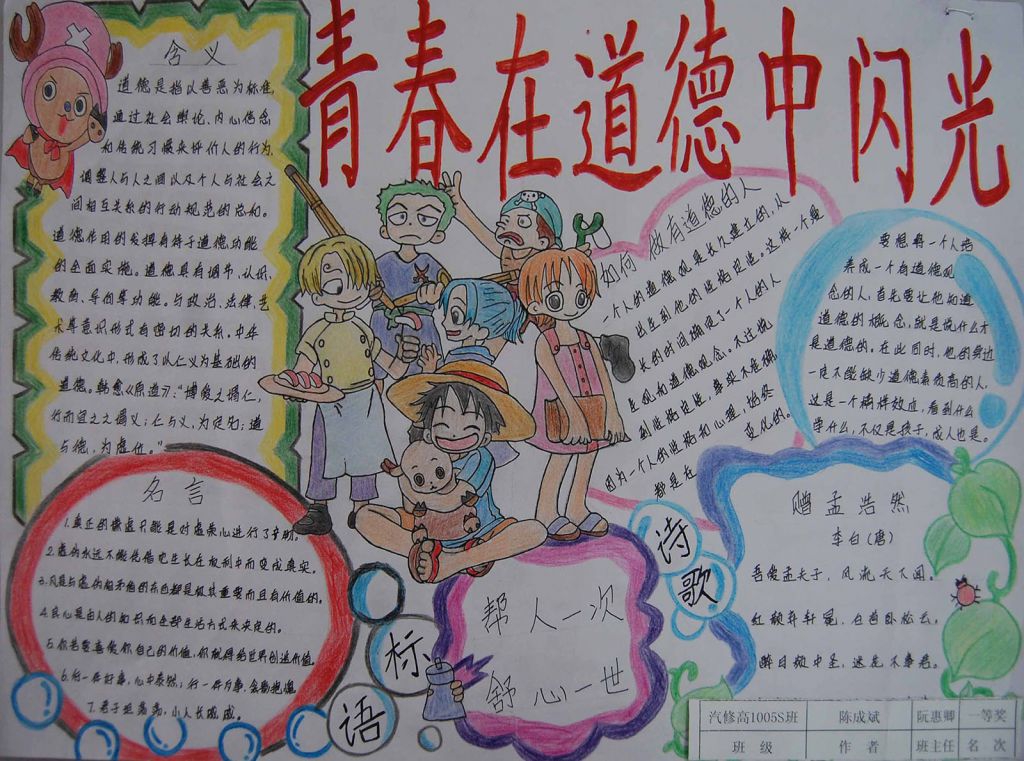 青春在道德中闪光
含义
道德是指以善恶为标准,
通过社会舆论、内心信念
和传统习惯来评价人的行为,
调整人与人之间以及个人与社会之
间相互关系的行动规范的总和。
道德作用的发挥有待于道德功能
的全面实施。道德具有调节、认识、
教育、导向等功能。与政治、法律、艺
术等意识形式有密切的关系。中华
传统文化中,形成了以仁义为基础的
道德。韩愈《原道》:“博爱之谓仁,
行而宜之之谓义;仁与义,为定名;道
与德,为虚位。”
如何做有道德的人
一个人的道德观是长久建立的,从
长的时间确便了一个人的人
因为一个人的性格和心理,始终
都是在
变化的。
要想将一个人培
养成一个有道德观
念的人,首先要让他知道
道德的概念,就是说什么才
是道德的。在此同时,他的身边
一定不能缺少道德素教高的人,
这是一个榜样效应,看到什么
学什么,不仅是孩子,成人也是。
名言
1.真正的谦虚只能是对虚荣心进行了
2.虚伪永远不能凭借它生长在权利中而变成真实。
3.凡是与虚伪相矛盾的东西都是极其重要而且有价值的。
4.良心是由人的知识和全部生活方式来决定的。
5.你若要喜爱你自己的价值,你就得给世界创造价值。
6.行一件好事,心中泰然;行一件歹事,
7.君子坦荡荡,小人长戚戚。
标语
帮人一次
舒心一世
诗歌
赠孟浩然
李白(唐)
吾爱孟夫子,风流天下闻。
红颜弃轩冕,白首卧松云。
醉月频中圣,迷花不事君。
汽修高1005S班 陈成斌 阮惠卿 一等奖
班级 作者 班主任 名次